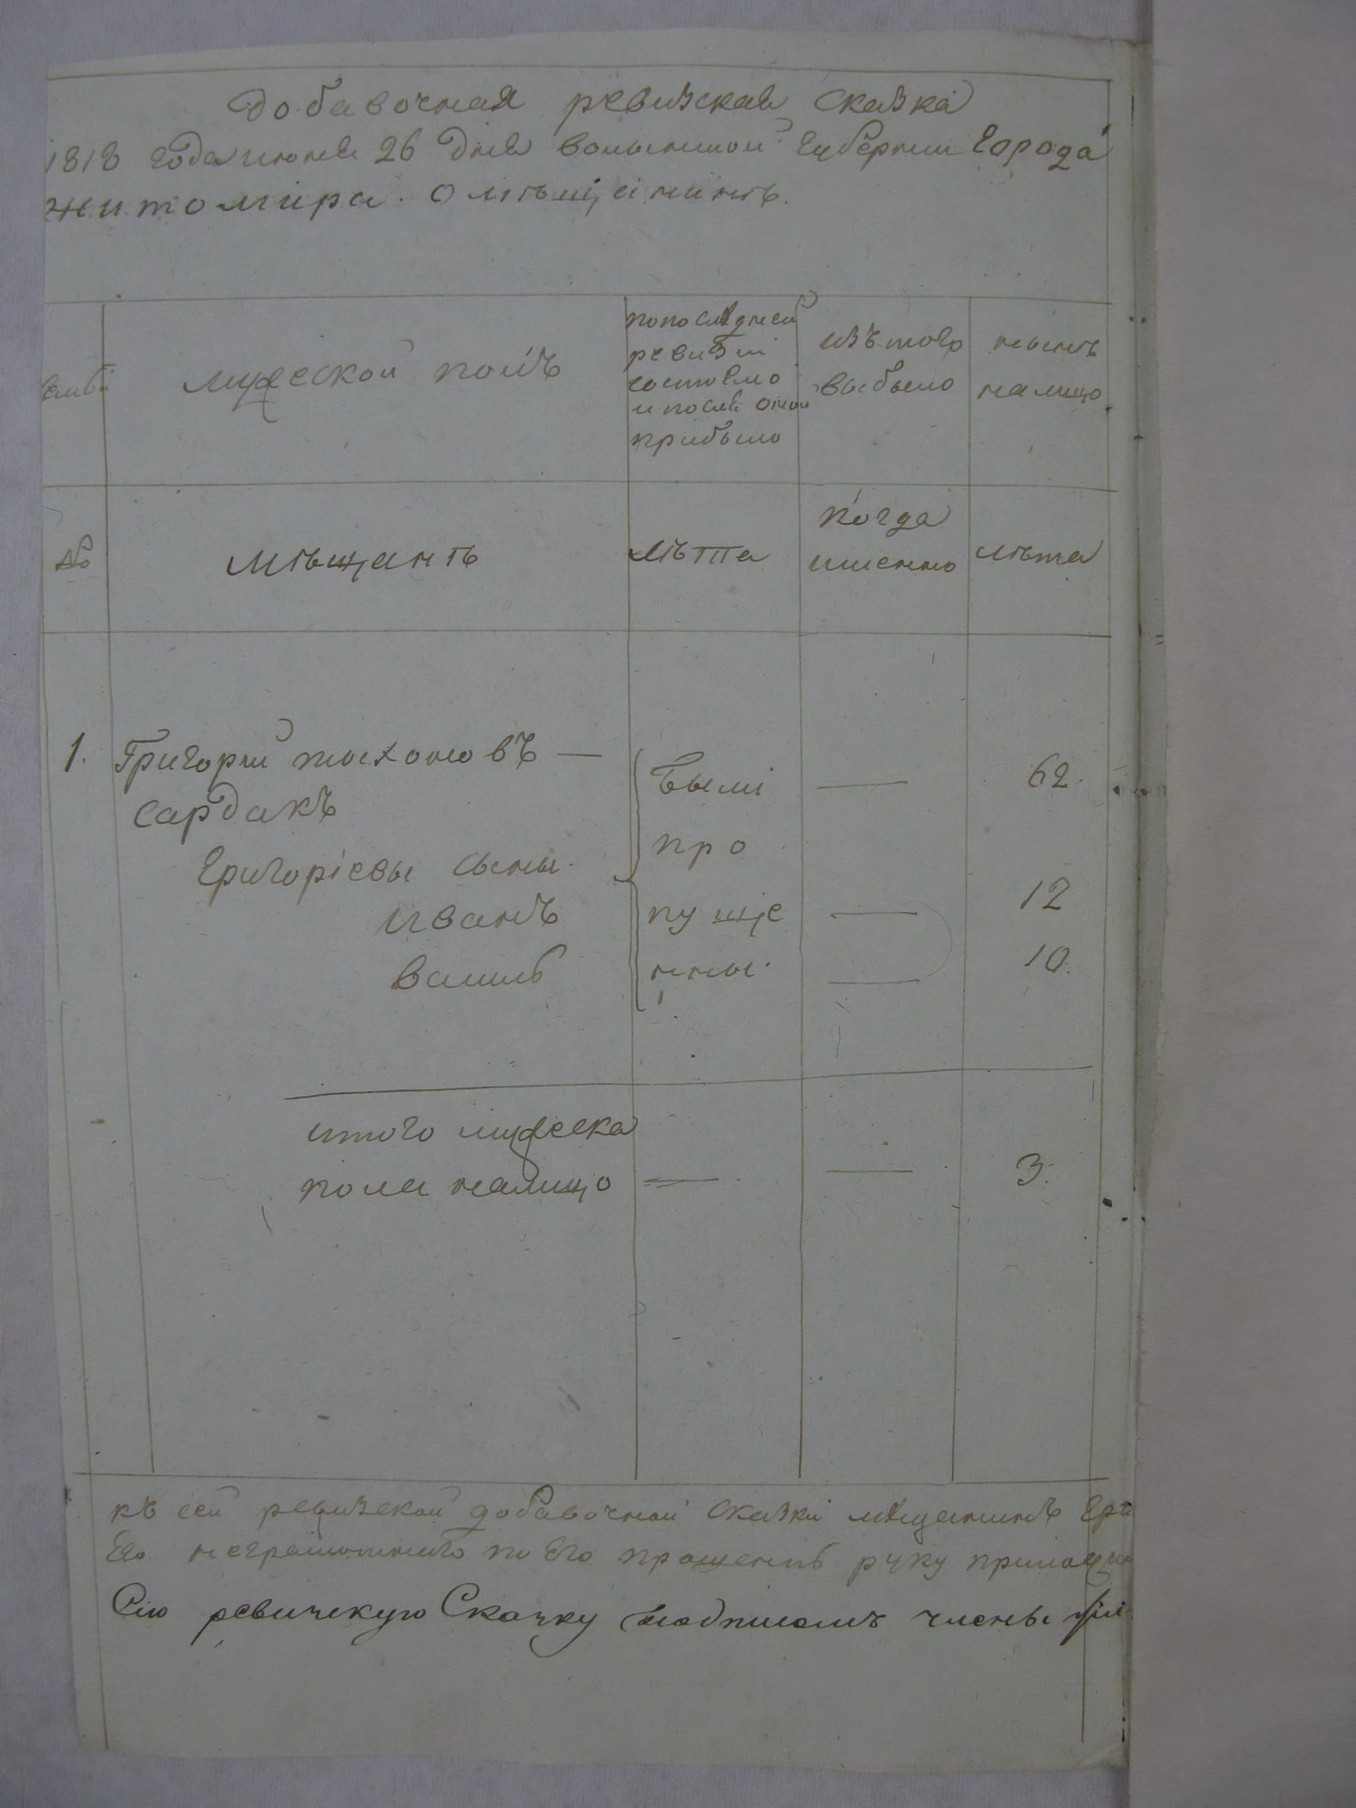 Добавочная ревизская сказка
1818 года июня 26 дня волынской Губернии Города
житомира. О мѣщанинѣ.
семьи
мужеской полъ
попоследней
ревизіи
состояло
и после оной
прибыло
изътого
выбыло
нынѣ
налицо
№
мѣщанѣ
лѣта
когда
имянно
лѣта
1. Григорий тихоновъ —
Сардакъ
Григоріевы сыны
иванъ
василь
были
про
пуще
нны
62.
12
10.
итого мужеска
пола налицо
3.
къ сей ревизской добавочной сказки мещанинъ Гри
его неграмотнаго по его прошению руку приложил
Сию ревизскую Сказку подписалъ члены